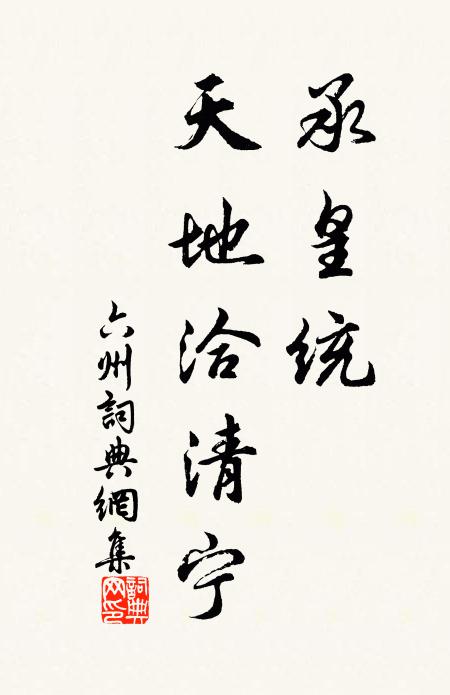 承皇统
天地洽清宁
六州詞典網集
詞典网印